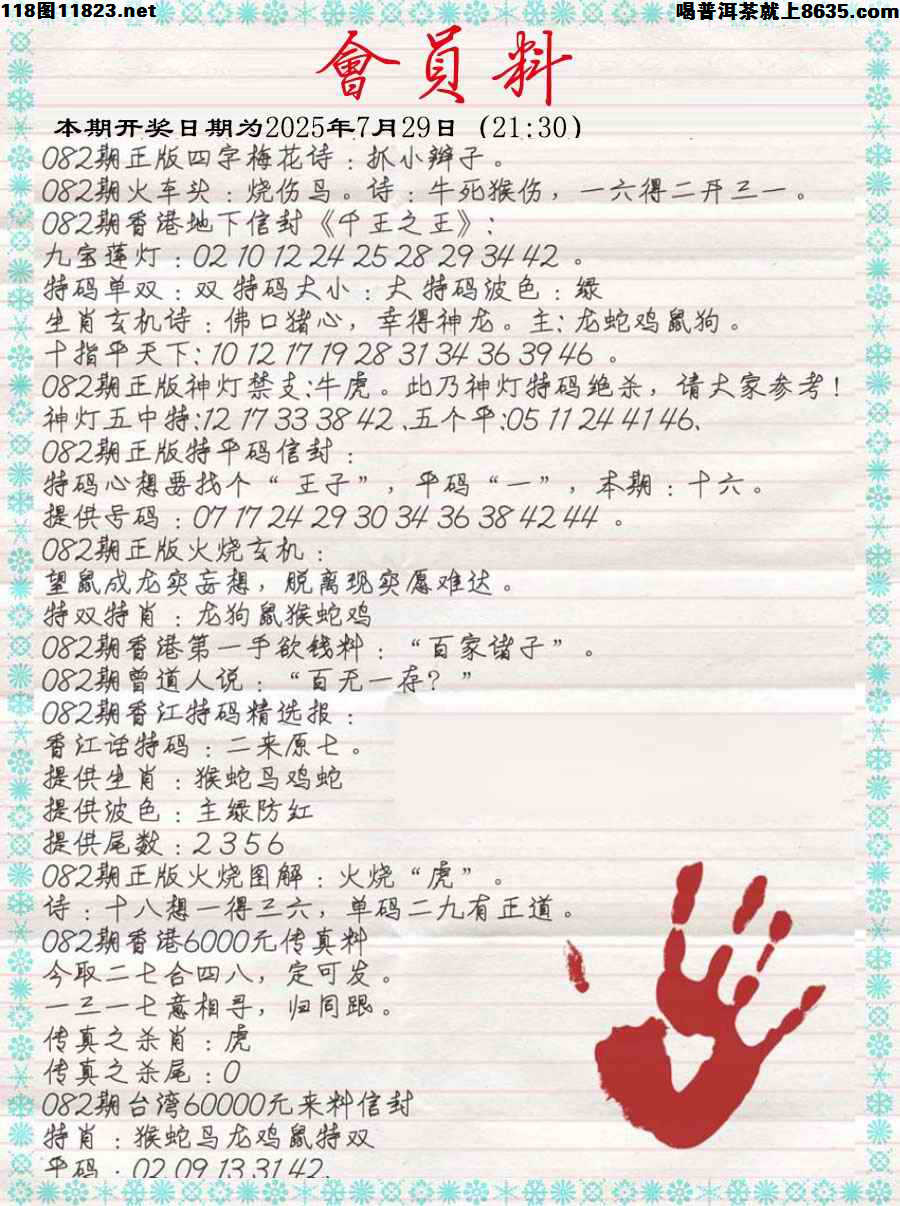 118图11823.net
喝普洱茶就上8635.com
會員料
本期开奖日期为2025年7月29日（21:30）
082期正版四字梅花诗：抓小辫子。
082期火车头：烧伤鸟。诗：牛死猴伤，一六得二开三一。
082期香港地下信封《千王之王》：
九宝莲灯：02 10 12 24 25 28 29 34 42 。
特码单双：双 特码大小：大 特码波色：绿
生肖玄机诗：佛口猪心，幸得神龙。主：龙蛇鸡鼠狗。
十指平天下：10 12 17 19 28 31 34 36 39 46 。
082期正版神灯禁支：牛虎。此乃神灯特码绝杀，请大家参考！
神灯五中特：12 17 33 38 42 、五个平：05 11 24 41 46、
082期正版特平码信封：
特码心想要找个“ 王子”，平码“一”，本期：十六。
提供号码：07 17 24 29 30 34 36 38 42 44 。
082期正版火烧玄机：
望鼠成龙突妄想，脱离现实愿难达。
特双特肖：龙狗鼠猴蛇鸡
082期香港第一手欲钱料：“百家诸子”。
082期曾道人说：“百无一存？”
082期香江特码精选报：
香江话特码：二来原七。
提供生肖：猴蛇马鸡蛇
提供波色：主绿防红
提供尾数：2 3 5 6
082期正版火烧图解：火烧“虎”。
诗：十八想一得三六，单码二九有正道。
082期香港6000元传真料
今取二七合四八，定可发。
一三一七意相寻，归同跟。
传真之杀肖：虎
传真之杀尾：0
082期台湾60000元来料信封
特肖：猴蛇马龙鸡鼠特双
平码：02 09 13 31 42、